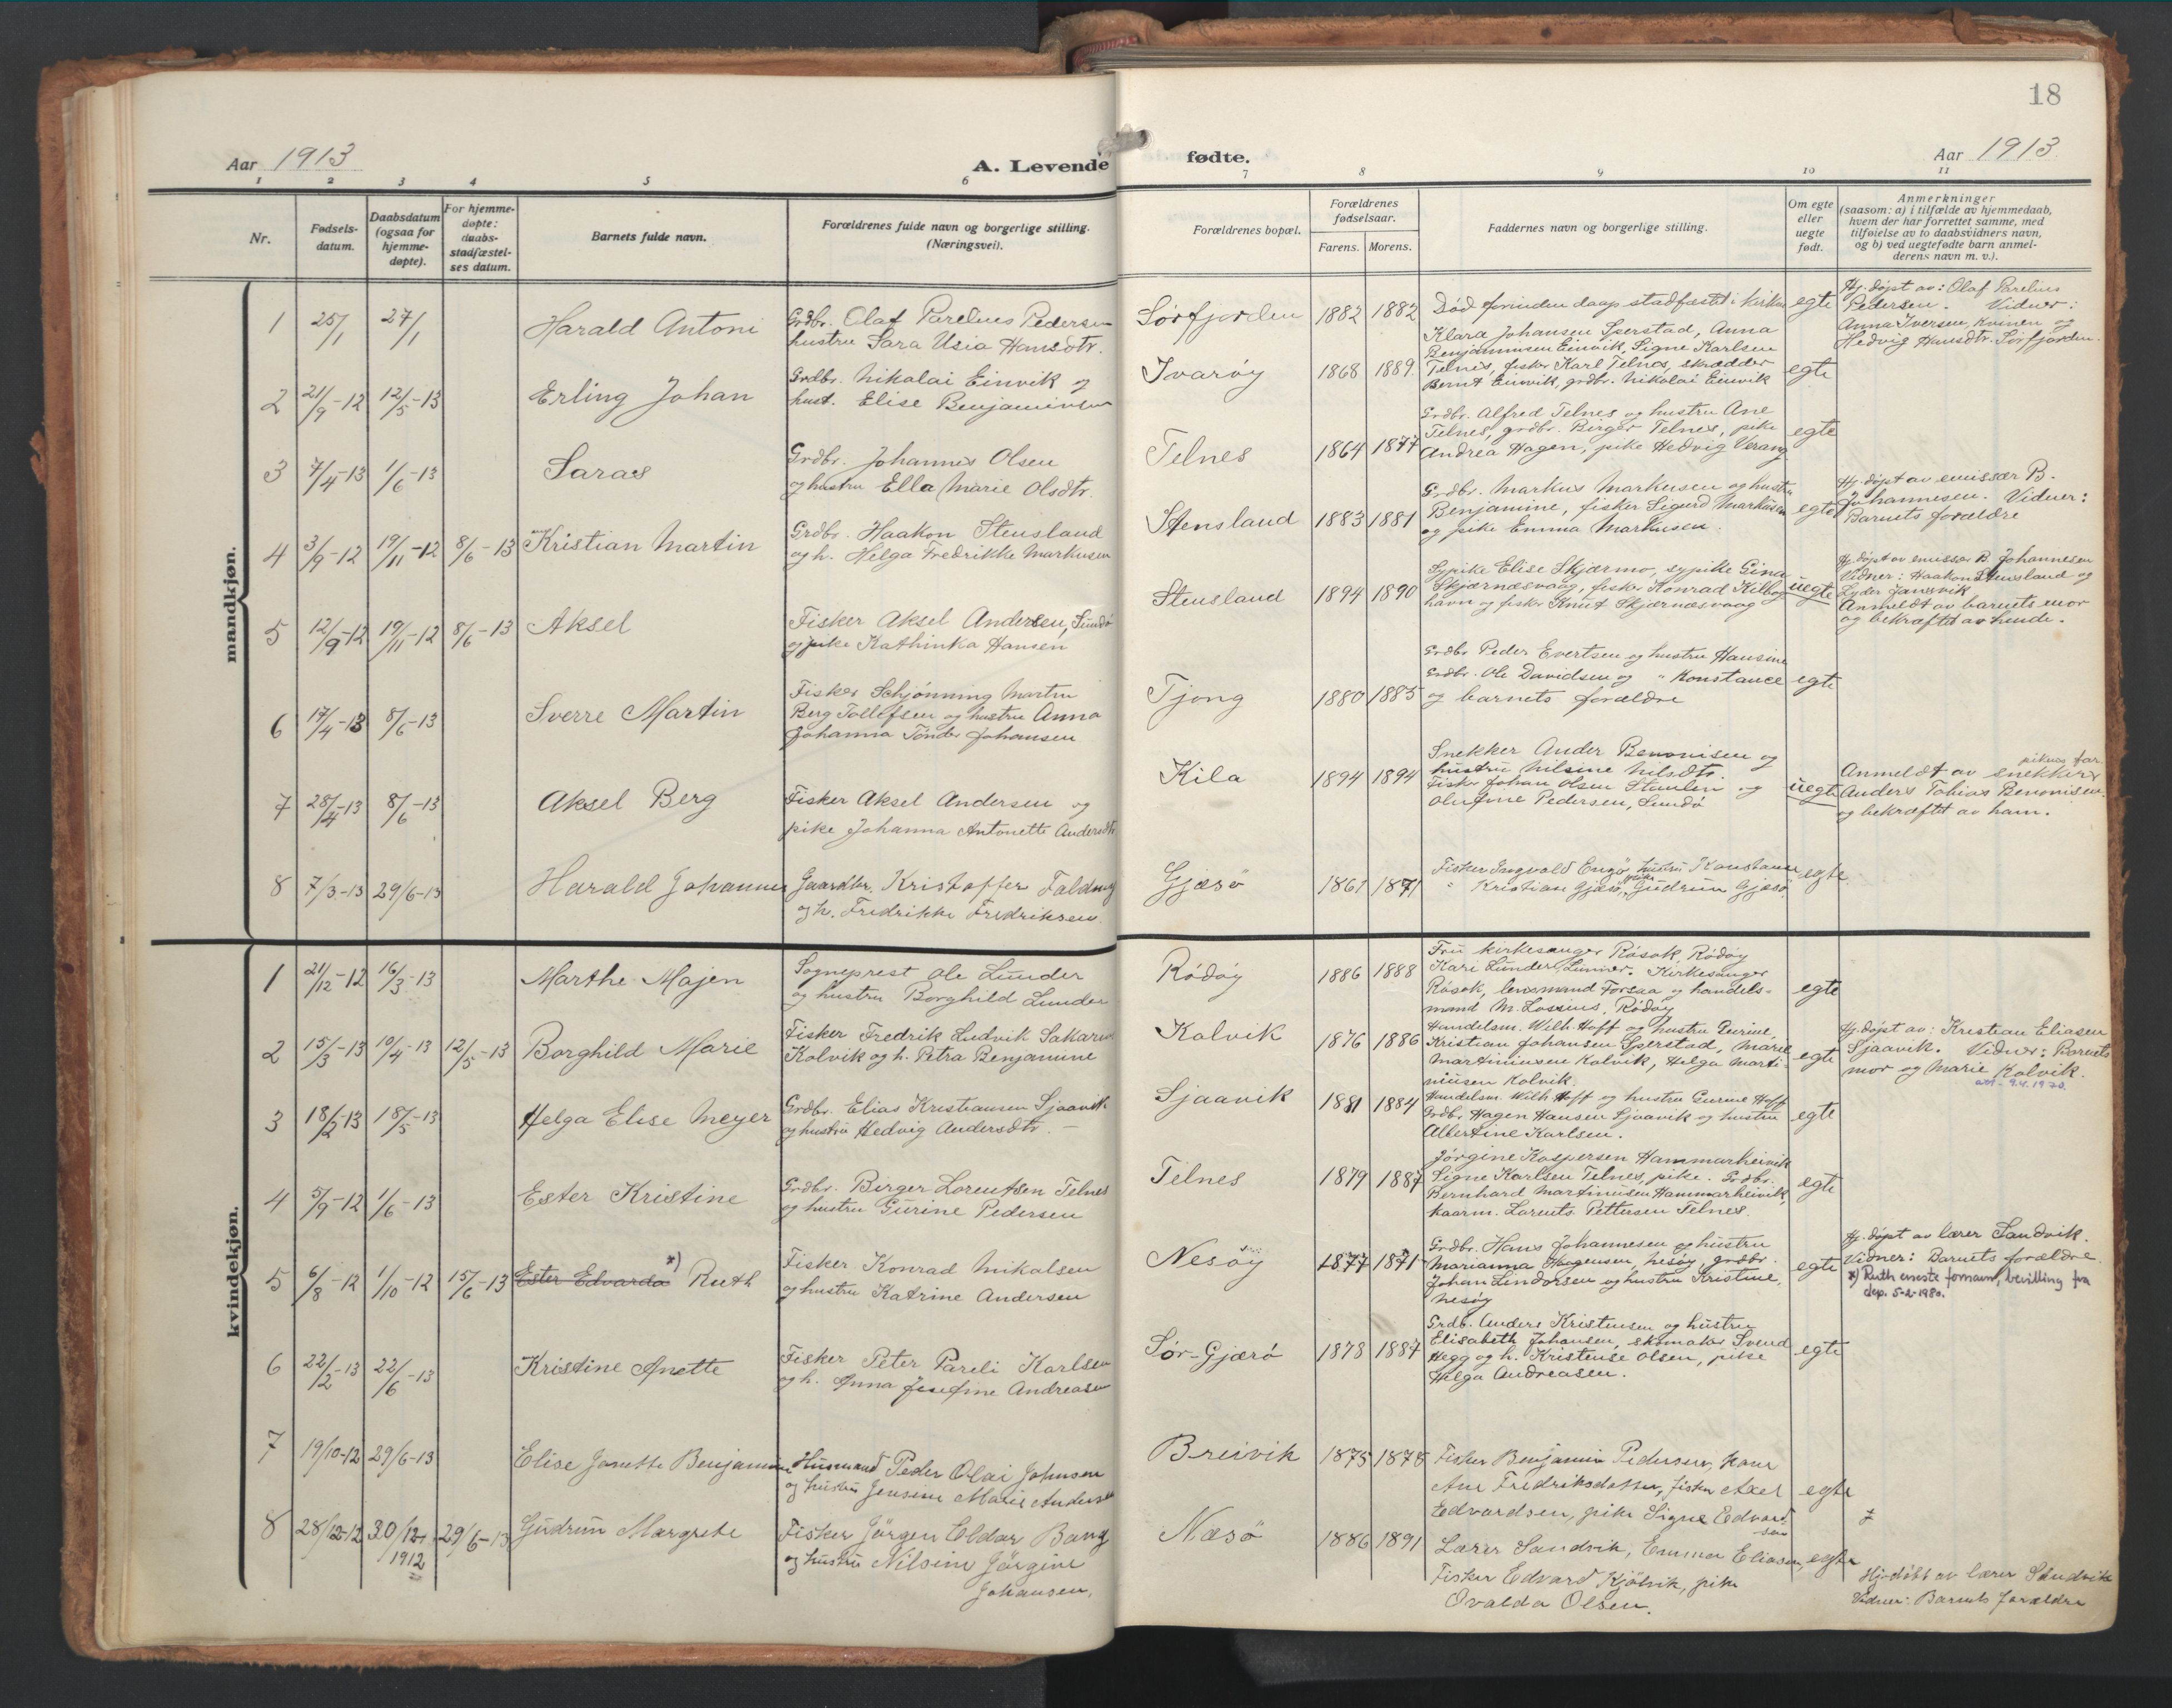 18
Aar 1913
A. Levende fødte.
Aar 1913
1 2 3 4 5 6 7 8 9 10 11
Nr.
Fødsels-
datum.
Daabsdatum
(ogsaa for
hjemme-
døpte).
For hjemme-
døpte:
daabs-
stadfæstel-
ses datum.
Barnets fulde navn.
Forældrenes fulde navn og borgerlige stilling.
(Næringsvei).
Forældrenes bopæl.
Forældrenes
fødselsaar.
Farens. Morens.
Faddernes navn og borgerlige stilling.
Om egte
eller
uegte
født.
Anmerkninger
(saasom: a) i tilfælde av hjemmedaab,
hvem der har forrettet samme, med
tilføielse av to daabsvidners navn,
og b) ved uegtefødte barn anmel-
derens navn m. v.).
mandkjøn.
1 25/1 27/1 Harald Antoni
Grdbr. Olaf Parelius Pedersen
hustru Sara Usia Hansdtr.
Sørfjorden 1882 1882
Død forinden daap stadfæstet i kirken
egte
Hj. døpt av: Olaf Parelius
Pedersen. Vidner:
Anna Iversen, Kvinen og
Hedvig Hansdtr. Sørfjorden.
2 21/9-12 12/5-13 Erling Johan
Grdbr. Nikolai Einvik og
hust. Elise Benjaminsen
Ivarøy 1868 1889
Klara Johansen Sperstad, Anna
Benjaminsen Einvik, Signe Karlsen
Telnes, fisker Karl Telnes, skrædder
Bernt Einvik, grdbr. Nikolai Einvik
egte
3 7/4-13 1/6-13 Saras
Grdbr. Johannes Olsen
og hustru Ella Marie Olsdtr.
Telnes 1864 1877
Grdbr. Alfred Telnes og hustru Ane
Telnes, grdbr. Birger Telnes, pike
Andrea Hagen, pike Hedvig Verang.
egte
4 3/9-12 19/11-12 8/6-13 Kristian Martin
Grdbr. Haakon Stensland
og h. Helga Fredrikke Markusen
Stensland 1883 1881
Grdbr. Markus Markusen og hustru
Benjamine, fisker Sigurd Markusen
og pike Emma Markusen.
egte
Hj. døpt av emissær B.
Johannesen. Vidner:
Barnets forældre
5 12/9-12 19/11-12 8/6-13 Aksel
Fisker Aksel Andersen, Sundø
og pike Kathinka Hansen
Stensland 1894 1890
Sypike Elise Skjærmo, sypike Gina
Skjærnæsvaag, fisker Konrad Kilbog-
havn og fisker Knut Skjærnæsvaag
uegte
Hj. døpt av emissær B. Johannesen
Vidner: Haakon Stensland og
Lyder Jansvik
Anmeldt av barnets mor
og bekræftet av hende.
6 17/4-13 8/6-13 Sverre Martin
Fisker Schjønning Martin
Berg Tollefsen og hustru Anna
Johanna Tønder Johansen
Tjong 1880 1885
Grdbr Peder Evertsen og hustru Hansine
Grdbr. Ole Davidsen og " Konstance
og barnets forældre
egte
7 28/4-13 8/6-13 Aksel Berg
Fisker Aksel Andersen og
pike Johanna Antonette Andersdtr
Kila 1894 1894
Snekker Ander Benonisen og
hustru Nilsine Nilsdtr.
Fisker Johan Olsen Staulen og
Olufine Pedersen, Sundø
uegte
pikens far
Anmeldt av snekker
Anders Tobias Benonisen.
og bekræftet av ham.
8 7/3-13 29/6-13 Harald Johannes
Gaardbr. Kristoffer Falding
og h. Fredrikke Fredriksen.
Gjæsø 1861 1871
Fisker Ingvald Engø, hustru Konstanse
" Kristian Gjæsø, pike Gudrun Gjæsø
egte
kvindekjøn.
1 21/12-12 16/3-13 Marthe Majen
Sogneprest Ole Lunder
og hustru Borghild Lunder
Rødøy 1886 1888
Fru kirkesanger Røsok, Rødøy
Kari Lunder, Lunner. Kirkesanger
Røsok, lensmand Forsaa og handels-
mand M. Lossius, Rødøy
egte
2 15/3-13 10/4-13 12/5-13 Borghild Marie
Fisker Fredrik Ludvik Sakarias
Kolvik og h. Petra Benjamine
Kolvik 1876 1886
Handelsm. Wilh. Hoff og hustru Gurine,
Kristian Johansen Sperstad, Marie
Martiniusen Kolvik, Helga Marti-
niusen Kolvik.
egte
Hj. døpt av: Kristian Eliasen
Sjaavik. Vidner: Barnets
mor og Marie Kolvik.
att. 9.4.1970.
3 18/2-13 18/5-13 Helga Elise Meyer
Grdbr. Elias Kristiansen Sjaavik
og hustru Hedvig Andersdtr.
Sjaavik 1881 1884
Handelsm. Wilh. Hoff og hustru Gurine Hoff
Grdbr. Hagen Hansen Sjaavik og hustru
Albertine Karlsen.
egte
4 5/9-12 1/6-13 Ester Kristine
Grdbr. Birger Lorentsen Telnes
og hustru Gurine Pedersen
Telnes 1879 1887
Jørgine Kaspersen Hammarheivik
Signe Karlsen Telnes, pike. Grdbr.
Bernhard Martinusen Hammarheivik,
kaarm. Lorents Pettersen Telnes.
egte
5 6/8-12 1/10-12 15/6-13 Ester Edvarda *) Ruth
Fisker Konrad Mikalsen
og hustru Katrine Andersen
Nesøy 1877 1871
Grdbr. Hans Johannesen og hustru
Marianna Haagensen, Nesøy, grdbr.
Johan Lindorsen og hustru Kristine,
Nesøy
egte
Hj. døpt av lærer Sandvik.
Vidner: Barnets forældre
*) Ruth eneste fornavn, bevilling fra
dep. 5-2-1980.
6 22/2-13 22/6-13 Kristine Anette
Fisker Peter Pareli Karlsen
og h. Anna Josefine Andreasen
Sør-Gjærø 1878 1887
Grdb. Anders Kristensen og hustru
Elisabeth Johansen, skomaker Svend
Hegg og h. Kristense Olsen, pike
Helga Andreasen.
egte
7 19/10-12 29/6-13 Elise Janette Benjamine
Husmand Peder Olai Johnsen
og hustru Jensine Marie Andersen
Breivik 1875 1878
Fisker Benjamin Pedersen, kone
Ane Fredriksdatter, fisker Axel
Edvardsen, pike Signe Edvard-
sen
egte
8 28/12-12 30/12-1912 29/6-13 Gudrun Margrete
Fisker Jørgen Eldar Bang
og hustru Nilsine Jørgine
Johansen.
Næsø 1886 1891
Lærer Sandvik, Emma Eliasen,
Fisker Edvard Kjølvik, pike
Ovalda Olsen.
egte
Hj. døbt av lærer Sandvik
Vidner: Barnets forældre